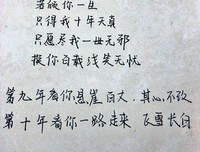 若能你一生
只得我十年天真
只愿尽我一世无邪
换你百载线笑无忧
第九年看你悬崖百丈，其心不改
第十年看你一路走来，风雪长白